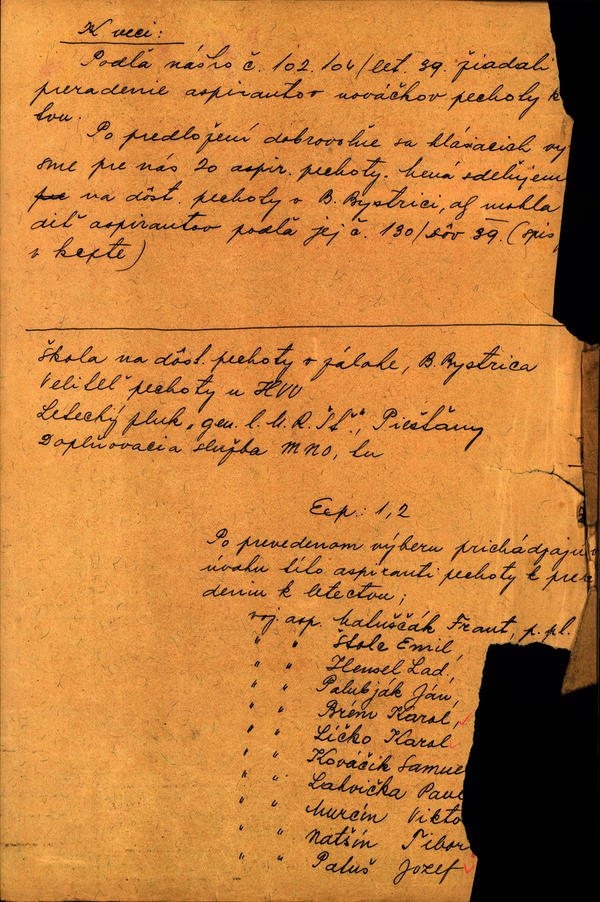 K veci:
Podľa nášho č. 102.104/let. 39. žiadali
preradenie aspirantov nováčkov pechoty k
tvu.
Po predložení dobrovoľne sa hlásiacich vy
sme pre nás 20 aspir. pechoty. Mená sdeľujem
na dôst. pechoty v B. Bystrici, aby mohla
diť aspirantov podľa jej č. 130/dôv 39. (spis
v kepte)
Škola na dôst. pechoty v zálohe, B. Bystrica
Veliteľ pechoty u HVV
Letecký pluk „gen. l. M. R. Št.", Piešťany
Doplňovacia služba MNO, tu
Exp.: 1, 2
Po prevedenom výberu prichádzajú v
úvahu títo aspiranti pechoty k prera
deniu k letectvu;
voj. asp. Matuščák Frant, p. pl.
" " Štolc Emil,
" " Hensel Lad,
" " Palubják Ján,
" " Brém Karol,
" " Líčko Karol
" " Kováčik Samue
" " Lahvička Pave
" " Murcín Vikto
" " Natšin Tibor
" " Patuš Jozef